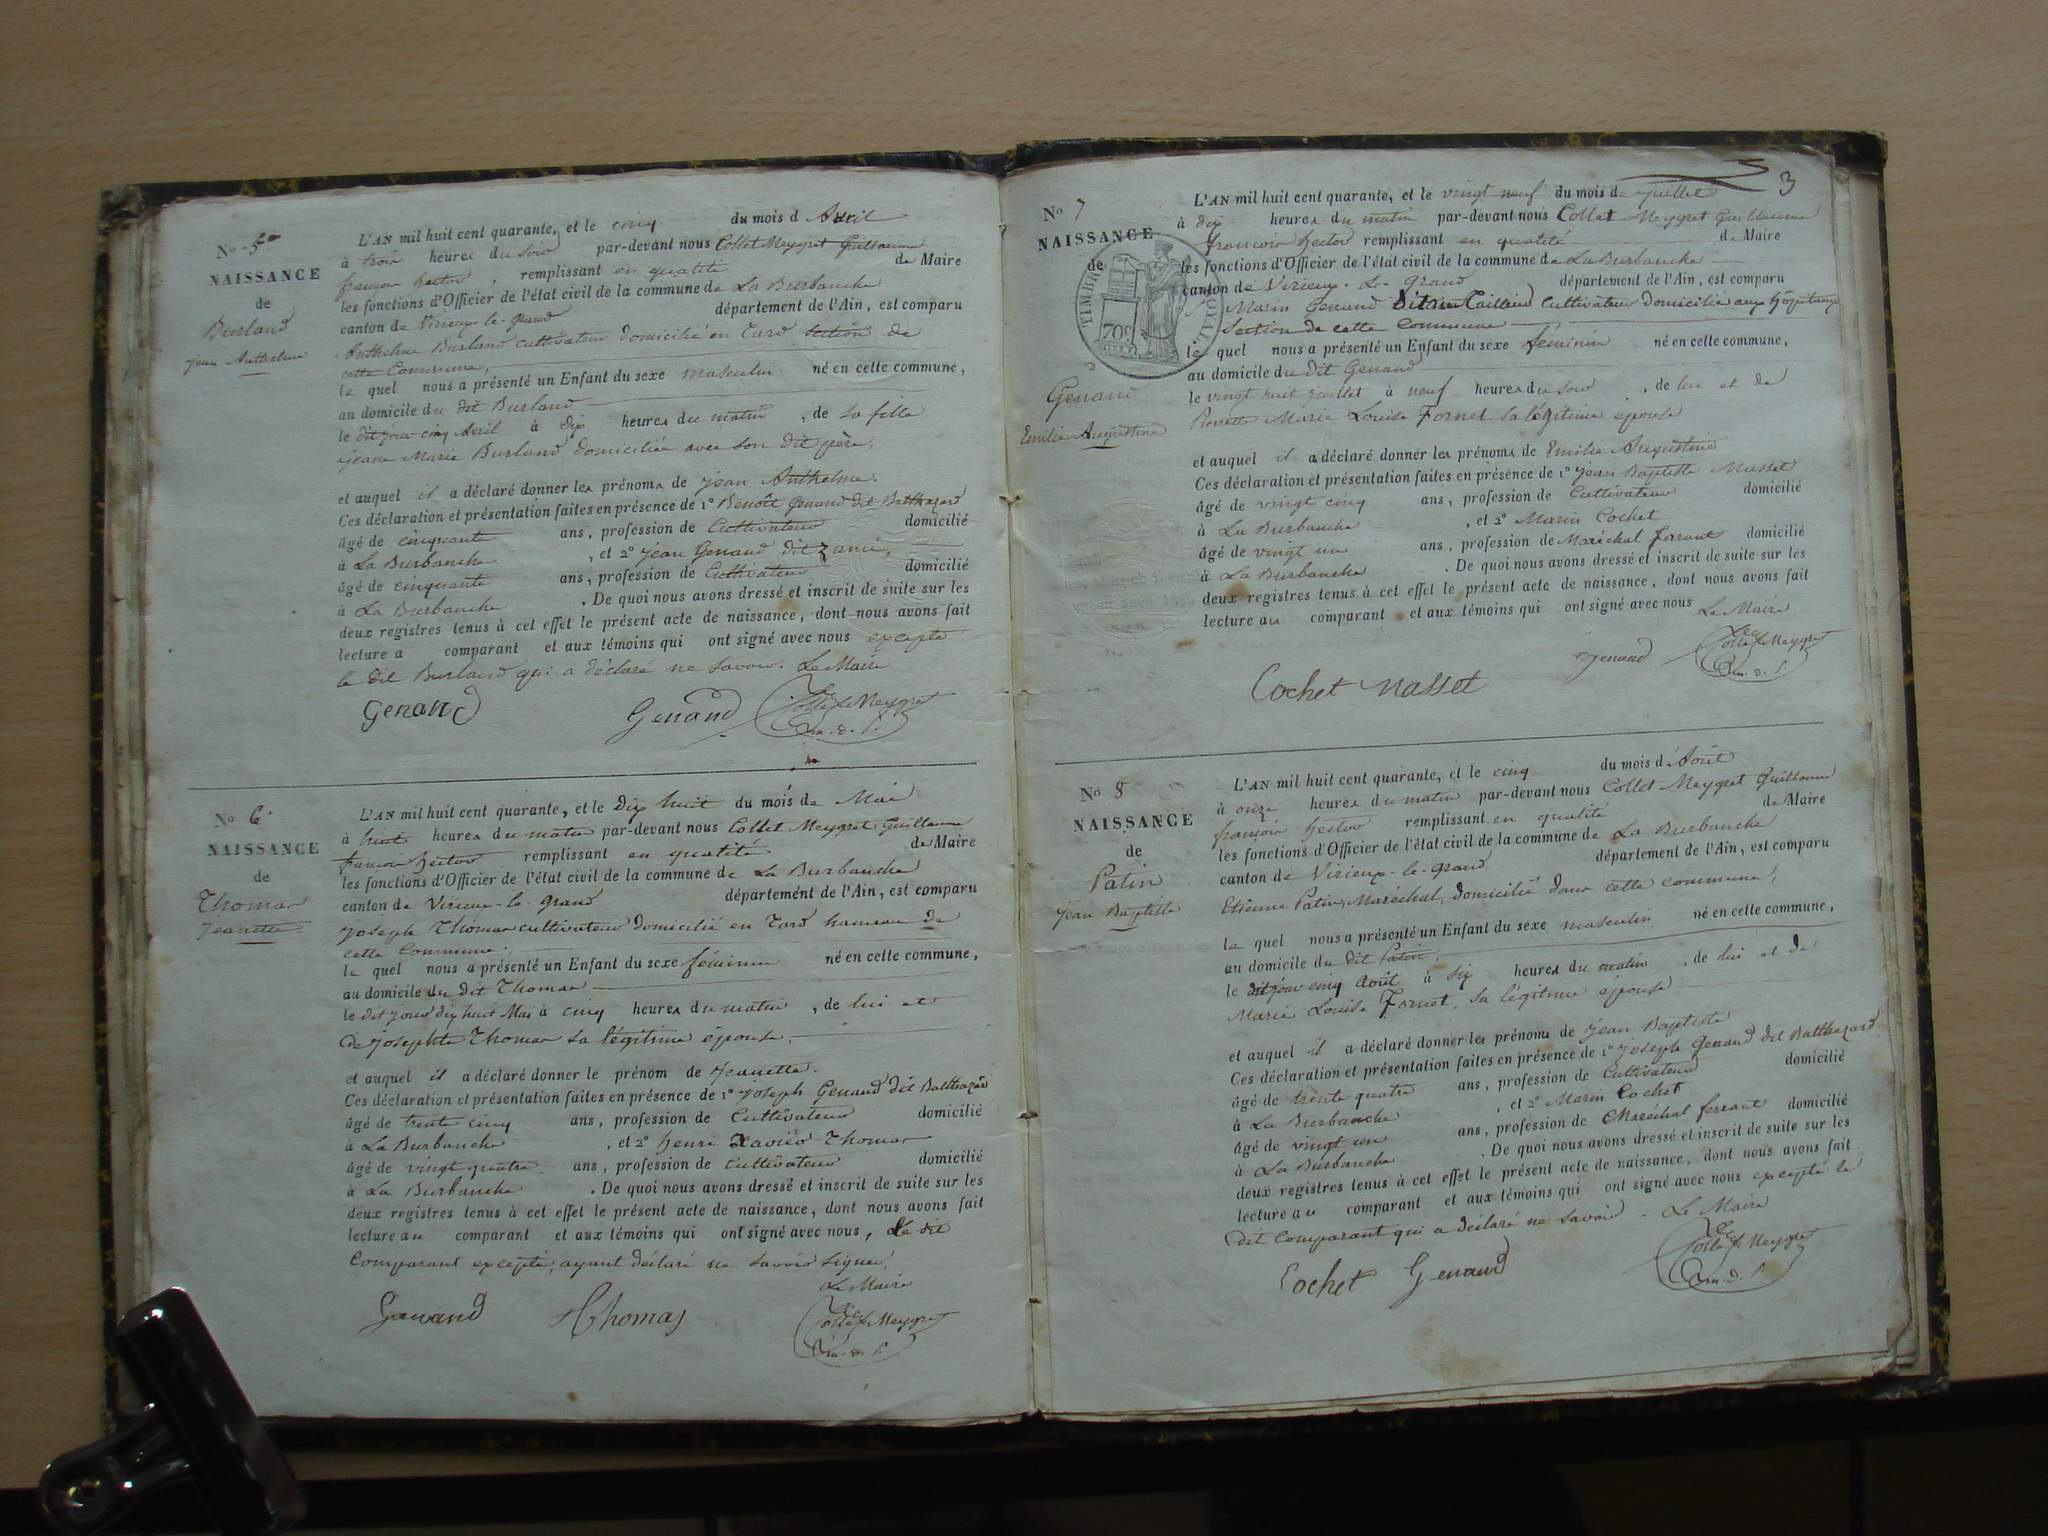 No 5
NAISSANCE
de
Burland
Jean Anthelme
L'AN mil huit cent quarante, et le cinq du mois d Avril
à trois heures du soir par-devant nous Collet Meygret Guillaume
françois hector, remplissant en qualité de Maire
les fonctions d'Officier de l'état civil de la commune de La Burbanche
canton de Virieux-le-grand département de l'Ain, est comparu
Anthelme Burland cultivateur domicilié en Tard section de
cette Commune,
le quel nous a présenté un Enfant du sexe masculin né en cette commune,
au domicile du dit Burland
le dit jour cinq Avril à dix heures du matin, de sa fille
jeane Marie Burland domiciliée avec son dit père,
et auquel il a déclaré donner les prénoms de jean Anthelme.
Ces déclaration et présentation faites en présence de 1° Benoît Genand dit Balthazard
âgé de cinquante ans, profession de Cultivateur domicilié
à La Burbanche, et 2° jean Genand dit
âgé de cinquante ans, profession de Cultivateur domicilié
à La Burbanche. De quoi nous avons dressé et inscrit de suite sur les
deux registres tenus à cet effet le présent acte de naissance, dont nous avons fait
lecture a comparant et aux témoins qui ont signé avec nous excepté
le dit Burland qui a déclaré ne savoir. Le Maire
Genand Genand Collet Meygret
No 6
NAISSANCE
de
Thomas
Jeanette
L'AN mil huit cent quarante, et le Dix huit du mois de Mai
à huit heures du matin par-devant nous Collet Meygret Guillaume
françois hector remplissant en qualité de Maire
les fonctions d'Officier de l'état civil de la commune de La Burbanche
canton de Virieux-le-grand département de l'Ain, est comparu
Joseph Thomas cultivateur domicilié en Tard hameau de
cette Commune.
le quel nous a présenté un Enfant du sexe féminin né en cette commune,
au domicile du dit Thomas
le dit jour dix huit Mai à cinq heures du matin, de lui et
de josephte Thomas sa légitime épouse.
et auquel il a déclaré donner le prénom de Jeanette.
Ces déclaration et présentation faites en présence de 1° joseph Genand dit Balthazard
âgé de trente cinq ans, profession de Cultivateur domicilié
à La Burbanche, et 2° henri Xavier Thomas
âgé de vingt quatre ans, profession de Cultivateur domicilié
à La Burbanche. De quoi nous avons dressé et inscrit de suite sur les
deux registres tenus à cet effet le présent acte de naissance, dont nous avons fait
lecture au comparant et aux témoins qui ont signé avec nous, le dit
Comparant excepté, ayant déclaré ne savoir signer.
Le Maire
Genand Thomas Collet Meygret
3
No 7
NAISSANCE
de
TIMBRE ROYAL
Genand
Emilie Augustine
L'AN mil huit cent quarante, et le vingt neuf du mois de juillet
à dix heures du matin par-devant nous Collet Meygret Guillaume
françois hector remplissant en qualité de Maire
les fonctions d'Officier de l'état civil de la commune de La Burbanche
canton de Virieux-Le-Grand département de l'Ain, est comparu
Marin Genand Cultivateur domicilié aux hôpitaux
Section de cette Commune
le quel nous a présenté un Enfant du sexe féminin né en cette commune,
au domicile du dit Genand
le vingt huit juillet à neuf heures du soir, de lui et de
Pierrette Marie Louise Fornet sa légitime épouse
et auquel il a déclaré donner les prénoms de Emilie Augustine
Ces déclaration et présentation faites en présence de 1° jean Baptiste Masset
âgé de vingt cinq ans, profession de Cultivateur domicilié
à La Burbanche, et 2° Marin Cochet
âgé de vingt un ans, profession de Maréchal ferrant domicilié
à La Burbanche. De quoi nous avons dressé et inscrit de suite sur les
deux registres tenus à cet effet le présent acte de naissance, dont nous avons fait
lecture au comparant et aux témoins qui ont signé avec nous Le Maire
Cochet Masset Genand Collet Meygret
No 8
NAISSANCE
de
Patin
Jean Baptiste
L'AN mil huit cent quarante, et le cinq du mois d'Août
à onze heures du matin par-devant nous Collet Meygret Guillaume
françois hector remplissant en qualité de Maire
les fonctions d'Officier de l'état civil de la commune de La Burbanche
canton de Virieux-le-grand département de l'Ain, est comparu
Etienne Patin, Maréchal, domicilié dans cette commune,
le quel nous a présenté un Enfant du sexe masculin né en cette commune,
au domicile du dit Patin,
le dit jour cinq août à six heures du matin, de lui et de
Marie Louise Fornet, sa légitime épouse
et auquel il a déclaré donner les prénoms de jean Baptiste
Ces déclaration et présentation faites en présence de 1° joseph Genand dit Balthazard
âgé de trente quatre ans, profession de Cultivateur domicilié
à La Burbanche, et 2° Marin Cochet
âgé de vingt un ans, profession de Maréchal ferrant domicilié
à La Burbanche. De quoi nous avons dressé et inscrit de suite sur les
deux registres tenus à cet effet le présent acte de naissance, dont nous avons fait
lecture au comparant et aux témoins qui ont signé avec nous excepté le
dit Comparant qui a déclaré ne savoir. Le Maire
Cochet Genand Collet Meygret